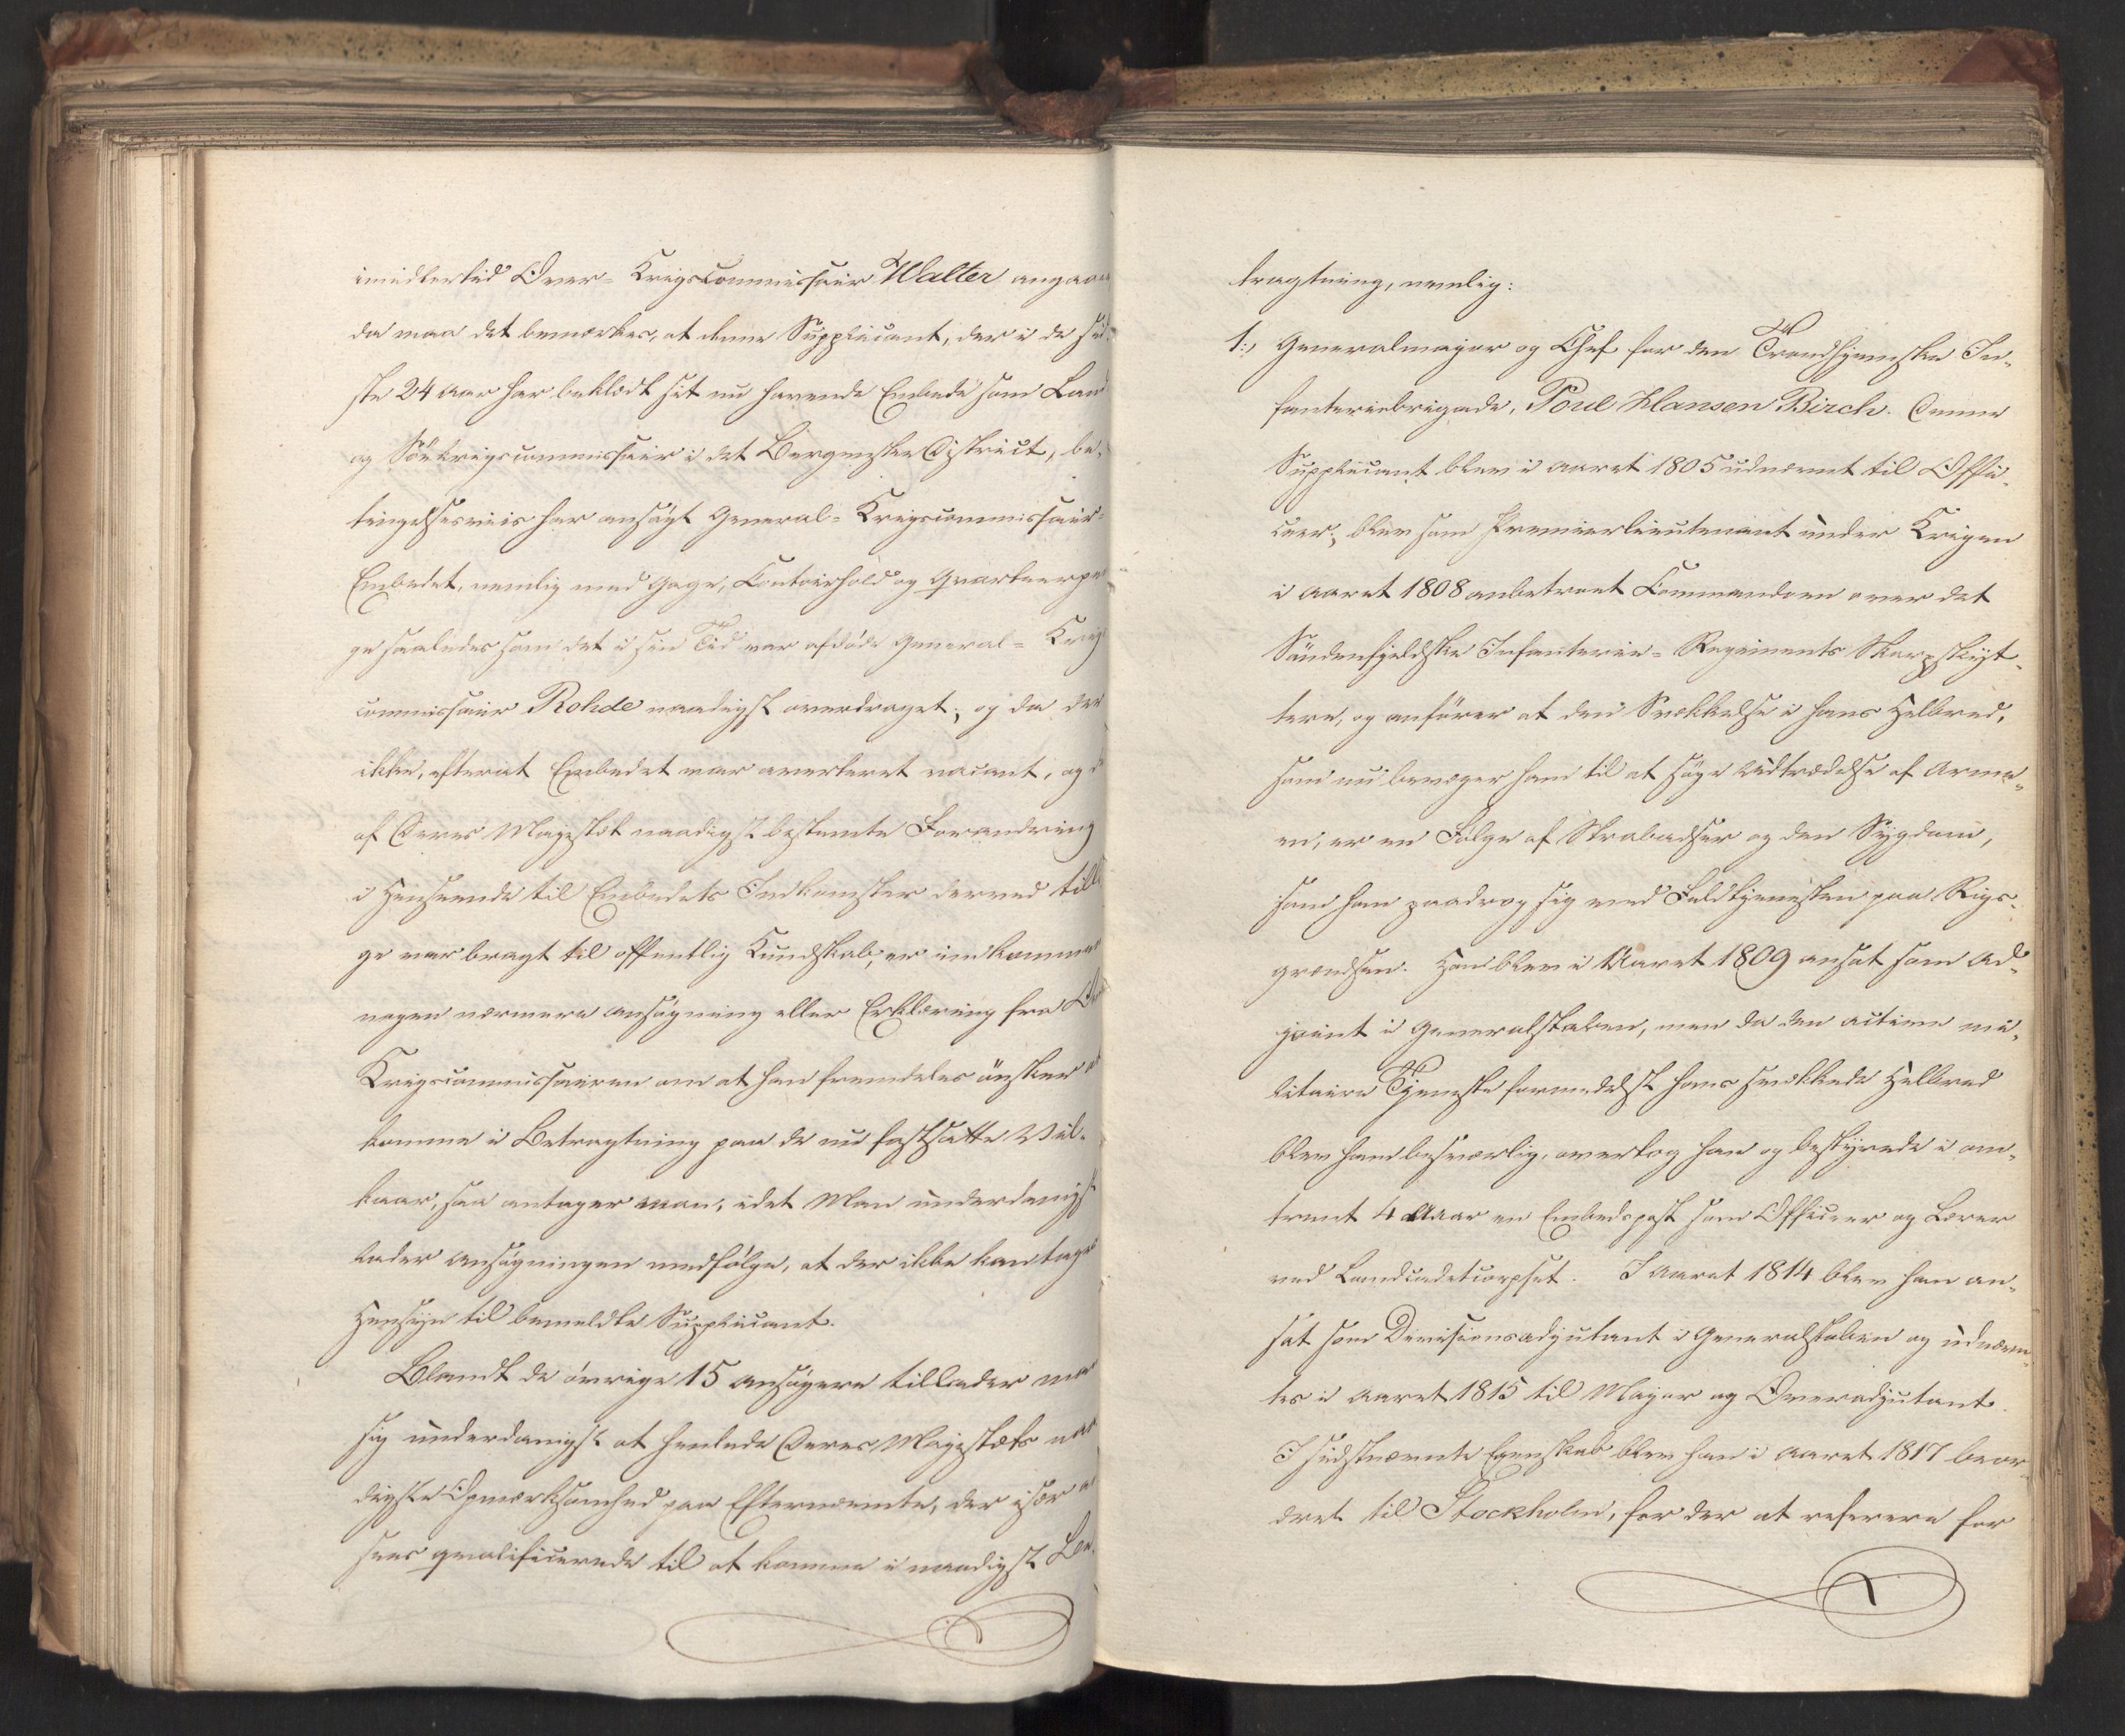 imidlertid Over-Krigscommissair Walter angaaer
da maa det bemærkes, at denne Supplicant, der i de sid-
ste 24 Aar har beklædt sit nu havende Embede som Land
og Söekrigscommissair i det Bergenske District, be-
tingelsesviis har ansögt General-Krigscommissair-
Embedet, nemlig med Gage, Contoirhold og Qvarteerpen
ge saaledes som det i sin Tid var afdöde General-Krigs
commissair Rohde naadigst overdraget; og da der
ikke, efterat Embedet var averteret vacant, og d
af Deres Majestæt naadigst bestemte Forandring
i Henseende til Embedets Indkomster derved till
ge var bragt til offentlig Kundskab, er indkommen
nogen nærmere Ansögning eller Erklæring fra Ov
Krigscommissairen om at han fremdeles önsker at
komme i Betragtning paa de nu fastsatte Vil-
kaar, saa antager man, idet Man underdanigst
lader Ansögningen medfölge, at der ikke kan tages
Hensyn til bemeldte Supplicant.
Blandt de övrige 15 Ansögere tillader man
sig underdanigst at henlede Deres Majestæts naa
digste Opmærksomhed paa Efternævnte, der især an
sees qvalificerede til at komme i naadigst Be-
tragtning, nemlig:
1:, Generalmajor og Chef for den Trondhjemske In-
fanteriebrigade, Poul Hansen Birch. Denne
Supplicant blev i Aaret 1805 udnævnt til Offi-
ceer; blev som Premierlieutenant under Krigen
i Aaret 1808 anbetroet Commandoen over det
Söndenfjeldske Infanterie-Regiments Skarpskyt-
tere, og anförer at den Svækkelse i hans Helbred,
som nu bevæger ham til at söge Udtrædelse af Arme-
en, er en Fölge af Strabadser og den Sygdom,
som han paadrog sig ved Felttjenesten paa Rigs-
grændsen. Han blev i Aaret 1809 ansat som Ad-
joint i Generalstaben, men da den active mi-
litaire Tjeneste formedelst hans svækkede Helbred
blev ham besværlig, overtog han og bestyrede i om-
trent 4 Aar en Embedspost som Officeer og Lærer
ved Landcadetcorpset. I Aaret 1814 blev han an-
sat som Divisionsadjutant i Generalstaben og udnævn-
tes i Aaret 1815 til Major og Overadjutant.
I sidstnævnte Egenskab blev han i Aaret 1817 beor-
dret til Stockholm, for der at referere for